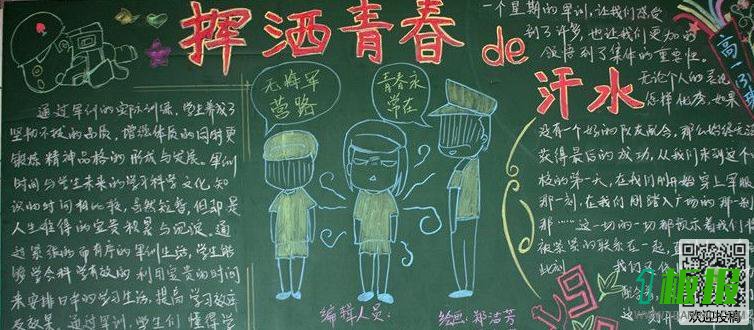 挥洒青春
de
汗水
通过军训的实际训练，学生养成了
坚韧不拔的品质，增强体质的同时更
锻炼精神品格的形成与发展。军训
时间与学生未来的学习科学文化知
识的时间相比较，虽然短暂，但却是
人生难得的宝贵积累与沉淀。通
过紧张的而有序的军训生活，学生能
够学会科学有效的利用宝贵的时间
来安排日中的学习生活，提高学习效率
及效果。通过军训，学生们懂得学
无将军
营路
青春永
常在
编辑人员：
绘画：郑洁芳
一个星期的军训，让我们感受
到了许多，也让我们更加的
领悟到了集体的重要性。
无论个人的
怎样优秀，如果
没有一个好的队友配合，那么始终无法
获得最后的成功，从我们来到这个
校的第一天，在我们刚开始穿上军服
那一刻，在我们刚踏入广场的那一刻
那一切的一切都预示着我们
被紧紧的联系在一起，
此刻
我们
高一
板报
欢迎投稿